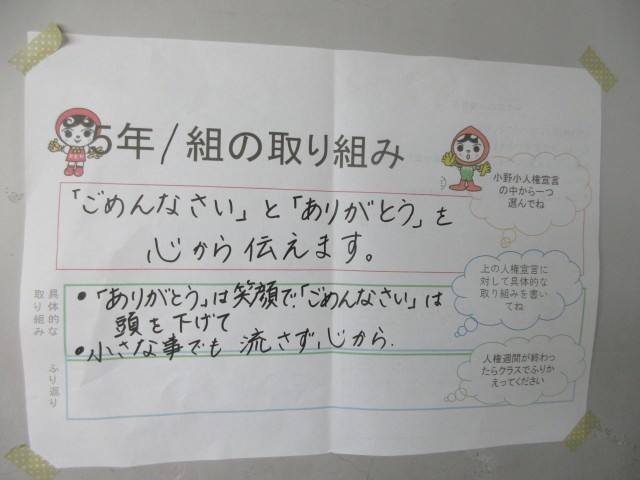 5年1組の取り組み
小野小人権宣言
の中から一つ
選んでね
「ごめんなさい」と「ありがとう」を
心から伝えます。
上の人権宣言に
対して具体的な
取り組みを書い
てね
具体的な
取り組み
•「ありがとう」は笑顔で「ごめんなさい」は
頭を下げて
•小さな事でも流さず心から.
ふり返り
人権週間が終わっ
たらクラスでふりか
えってください